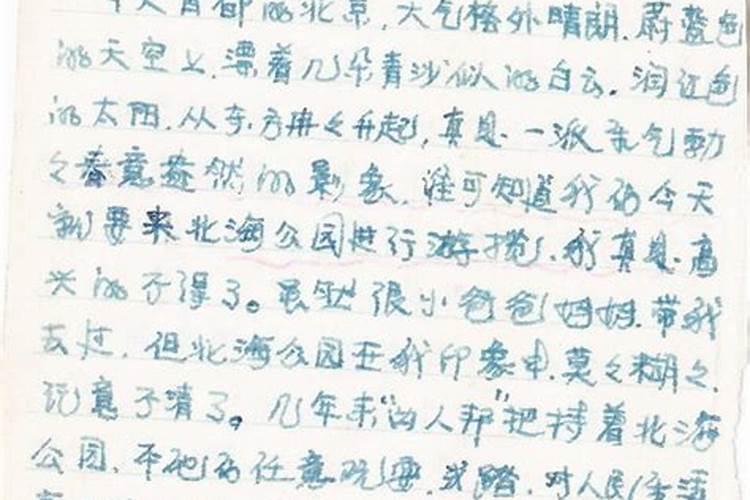 今天首都的北京,大气格外晴朗.蔚蓝色
的天空上.漂着几朵青沙似的白云.润红色
的太阳.从东方冉々升起,真是一派朝气勃
々春意盎然的影象.谁可知道我们今天
就要来北海公园进行游揽.我真是高
兴的不得了。虽然很小爸爸妈妈.带我
去过.但北海公园在我印象中.莫々糊々.
记意不清了。几年来“四人帮”把持着北海
公园.不他们任意玩耍.践踏.对人民